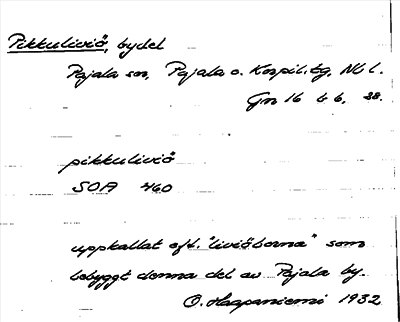 Pikkuliviö, bydel
Pajala sn, Pajala o. Korpil. tg, Nb l.
Gn 16 b 6, 38.
pikkuliviö
SOA 460
uppkallat eft. "liviöborna" som
bebyggt denna del av Pajala by.
O. Haapaniemi 1932